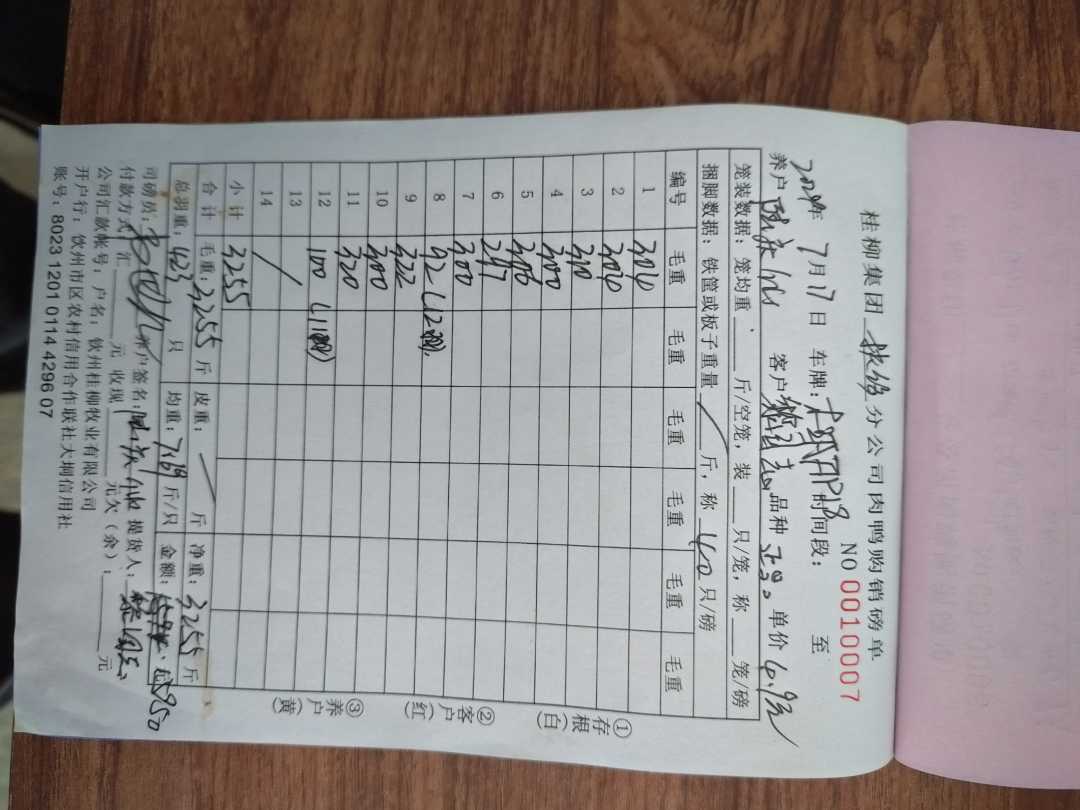 桂柳集团 分公司肉鸭购销磅单
NO 0010007
2024年 7月17日 车牌： 时间段： 至
养户 客户 品种 单价 4.9元
笼装数据：笼均重 斤/空笼，装 只/笼，称 笼/磅
捆脚数据：铁筐或板子重量 / 斤，称 40 只/磅
编号 毛重 毛重 毛重 毛重 毛重 毛重
1 304
2 304
3 310
4 300
5 306
6 297
7 300
8 92（12只）
9 322
10 300
11 320
12 100
13 /
14
小计 3255
合计 毛重：3255 斤 皮重：— 斤 净重：3255 斤
总羽重：423 只 均重：7.69 斤/只 金额： 15950
司磅员： 养户签名： 提货人：
付款方式：汇 元 收现 元欠（余）： 元
公司汇款帐号：户名：钦州桂柳牧业有限公司
开户行：钦州市区农村信用合作联社大垌信用社
账号：8023 1201 0114 4296 07
①存根（白）
②客户（红）
③养户（黄）